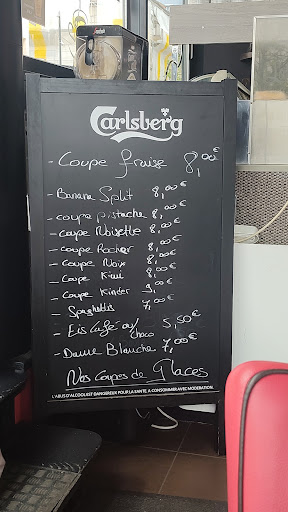 Carlsberg
- Coupe fraise 8,00€
- Banana Split 8,00€
- coupe pistache 8,00€
- coupe Noisette 8,00€
- coupe Rocher 8,00€
- coupe Noix 8,00€
- Coupe Kiwi 8,00€
- Coupe Kinder 9,00€
- Spaghettis 7,00€
- Eis Café ou Choco 5,50€
- Dame Blanche 7,00€
Nos Coupes de Glaces
L'ABUS D'ALCOOL EST DANGEREUX POUR LA SANTÉ. A CONSOMMER AVEC MODERATION.